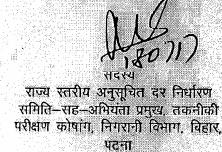 180717
सदस्य
राज्य स्तरीय अनुसूचित दर निर्धारण
समिति-सह-अभियंता प्रमुख, तकनीकी
परीक्षण कोषांग, निगरानी विभाग, बिहार,
पटना